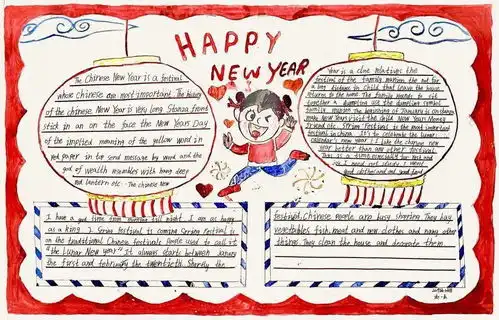 HAPPY
NEW YEAR
The Chinese New Year is a festival
whose Chinese are most important. The history
of the Chinese New Year is very long. Stanza from
stick in an on the face the New Years Day
of the meaning of the yellow word in
red paper in for send message by word and the
god of wealth with hang deep
red lantern etc. The Chinese New
Year is a
festival of the family
a long distance in child that leave the house
returns to the home. The family wants to sit
together a dumpling use the dumpling symbol
family the beginning of January is certain
make New Years visit the child New Years Money
Friend etc. Spring Festival is the most important
festival in China. It's to celebrate the lunar
calendar's new year. I like the Chinese new
year better than any other festival.
I need not study. I wear
good clothes and eat good food.
I have a god time from morning till night. I am as happy
as a king. Spring festival is coming. Spring festival is
on the traditional Chinese festivals. People used to call it
"the Lunar New year". It always starts between January
the first and february the twentieth. Shortly the
festival, Chinese people are busy shopping. They buy
vegetables fish meat and new clother and many other
things. They clean the house and decorate them.